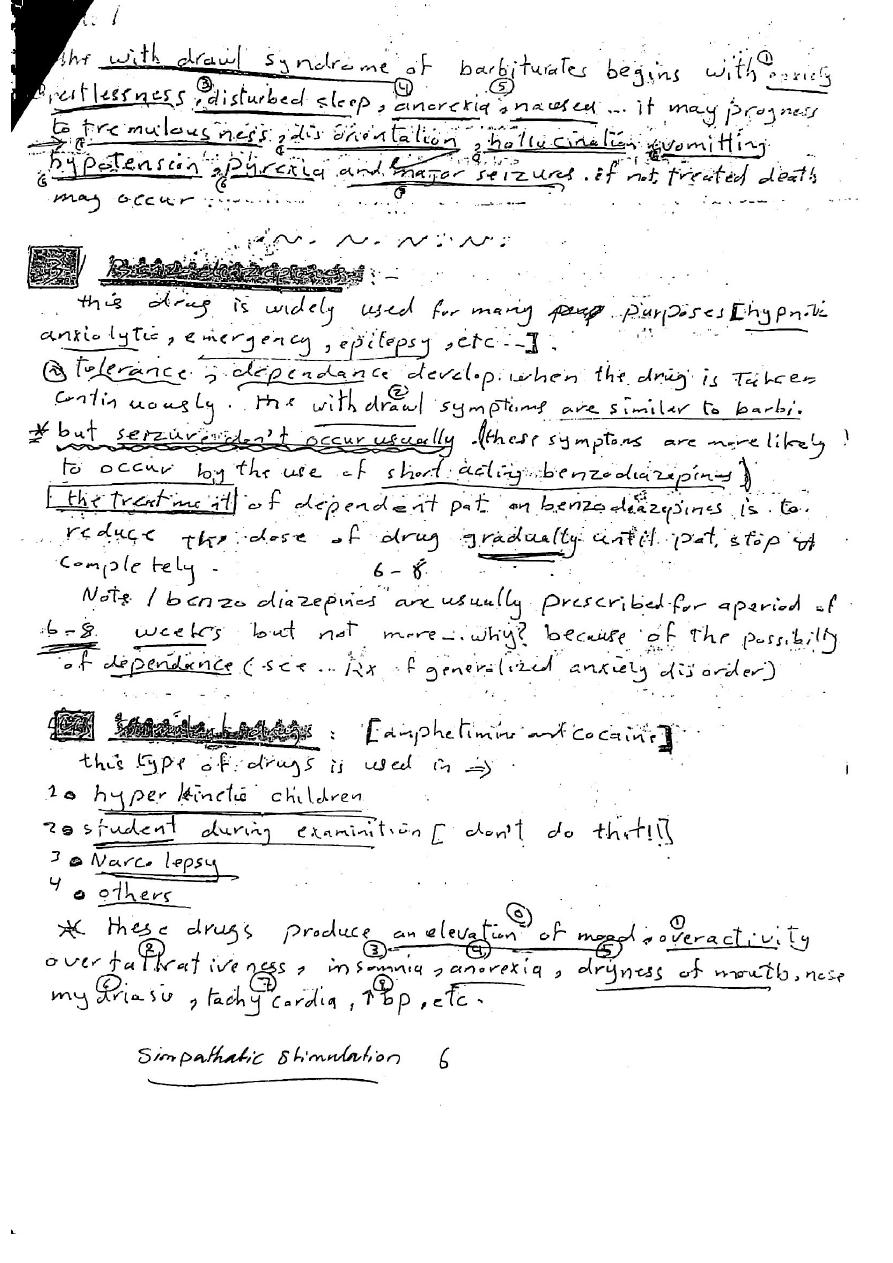 the with drawl syndrome of barbiturates begins with ① anxiety
restlessness, ③ disturbed sleep, ④ anorexia, ⑤ nausea ... it may progress
to tremulousness, dis orientation, hallucination, vomitting
hypotension, pyrexia and major seizures. if not treated death
may occur
3/ :-
this drug is widely used for many purposes [hypnotic
anxiolytic, emergency, epilepsy, etc --].
tolerance, dependance develop when the drug is Taken
contin uously. the with drawl symptoms are similar to barbi.
* but seizures don't occur usually. (these symptoms are more likely !
to occur by the use of short acting benzodiazepines)
the treatment of dependent pat on benzodiazepines is to
reduce the dose of drug gradually until pat. stop it
completely. 6-8
Note / benzo diazepines are usually prescribed for a period of
6-8 weeks but not more... why? because of the possibilty
of dependance (see ... Rx of generalized anxiety disorder)
: [amphetimine and cocaine]
this type of drugs is used in ⇒
1. hyper kinetic children
2. student during examinition [don't do that!!]
3. Narco lepsy
4. others
* these drugs produce an elevation of mood, ① overactivity
② over talkativeness, ③ insomnia, ④ anorexia, ⑤ dryness of mouth, nose
⑥ mydriasis, ⑦ tachy cardia, ⑧ ↑ bp, etc.
Simpathatic stimulation 6